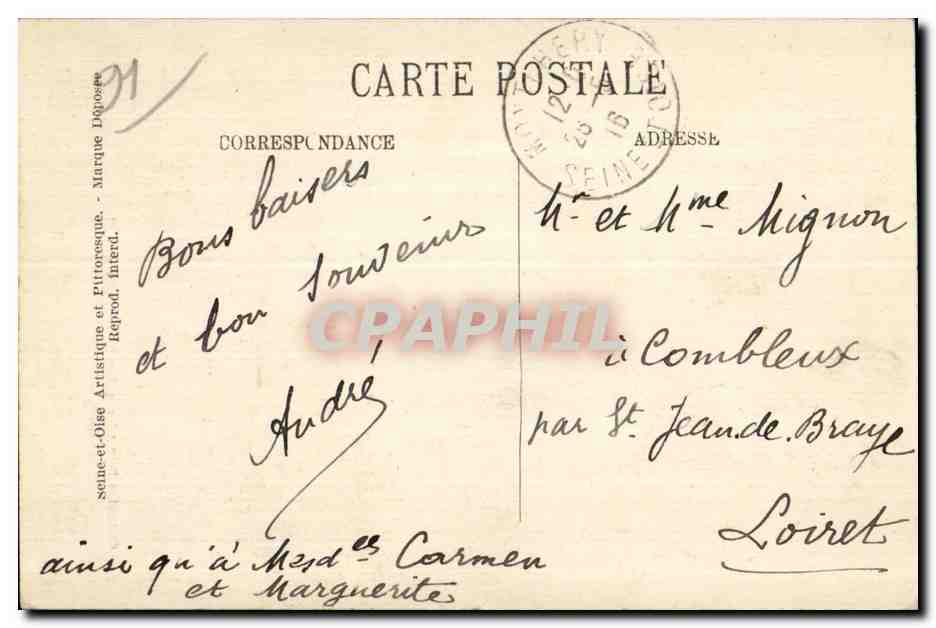 91
CARTE POSTALE
CORRESPONDANCE
ADRESSE
MONTLHERY
SEINE-ET-OISE
12
26
16
Seine-et-Oise Artistique et Pittoresque. - Marque Déposée
Reprod. interd.
Bons baisers
et bon souvenirs
André
ainsi qu'à Mesdelles Carmen
et Marguerite
Mr et Mme Mignon
à Combleux
par St. Jean.de.Braye
Loiret
CPAPHIL